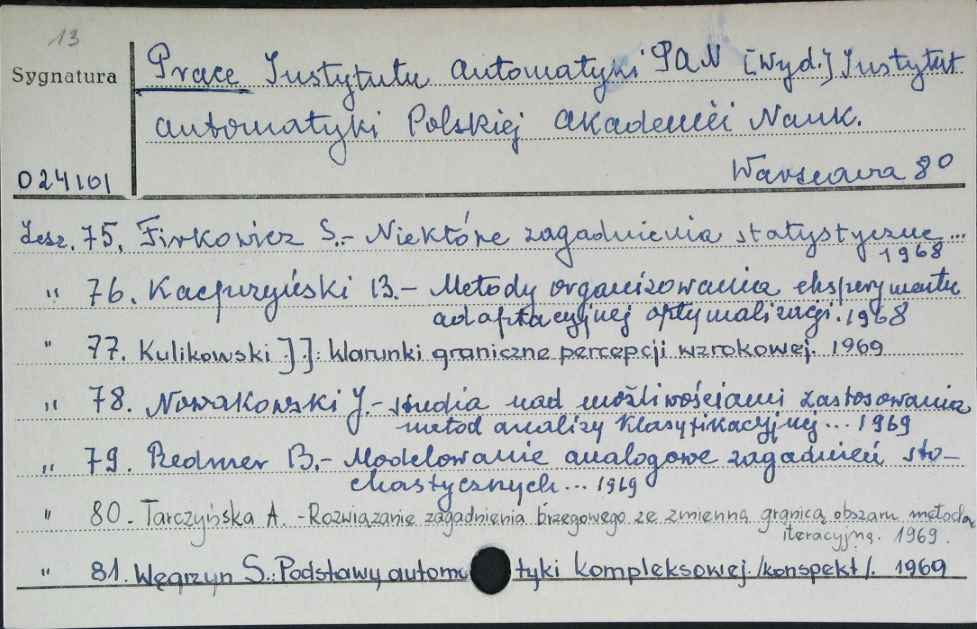 13
Sygnatura
Prace Instytutu automatyki PAN [Wyd.] Instytut
automatyki Polskiej akademii Nauk.
024101
Warszawa 80
Zesz. 75. Firkowicz S.- Niektóre zagadnienia statystyczne ...
1968
" 76. Kacprzyński B.- Metody organizowania eksperymentu
adaptacyjnej optymalizacji. 1968
" 77. Kulikowski J.J: Warunki graniczne percepcji wzrokowej. 1969
" 78. Nowakowski J.- studia nad możliwościami zastosowania
metod analizy klasyfikacyjnej... 1969
" 79. Redmer B.- Modelowanie analogowe zagadnień sto-
chastycznych... 1969
" 80. Tarczyńska A. -Rozwiązanie zagadnienia brzegowego ze zmienną granicą obszaru metodą
iteracyjną. 1969.
" 81. Węgrzyn S.: Podstawy automatyki kompleksowej /konspekt/. 1969